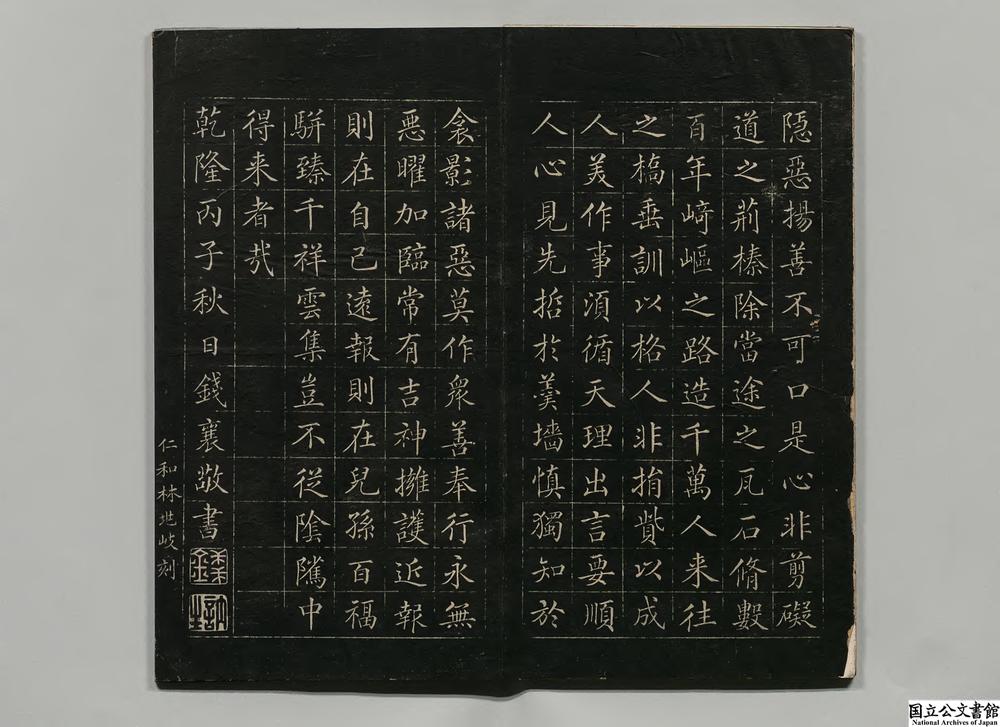 隠惡揚善不可口是心非剪礙
道之荊榛除當途之瓦石脩數
百年﨑嶇之路造千萬人来往
之橋垂訓以格人非捐貲以成
人美作事須循天理出言要順
人心見先哲於羹墻慎獨知於
衾影諸惡莫作衆善奉行永無
惡曜加臨常有吉神擁護近報
則在自己遠報則在兒孫百福
駢臻千祥雲集豈不從陰隲中
得来者哉
乾隆丙子秋日錢襄敬書
仁和林地岐刻
国立公文書館
National Archives of Japan